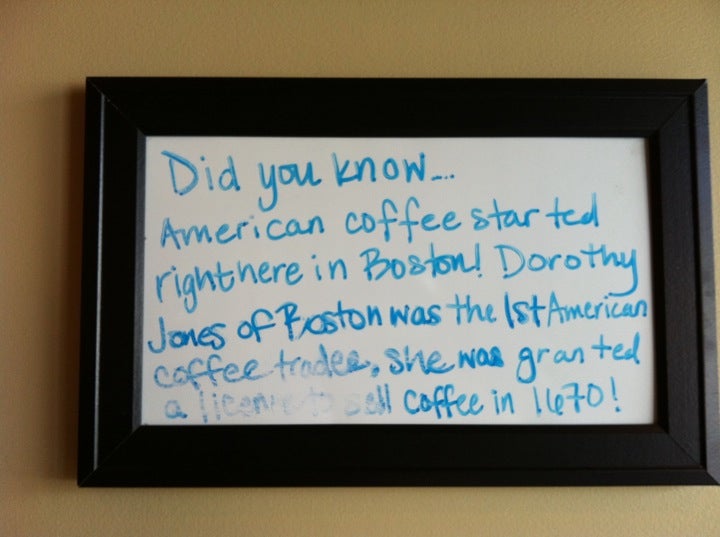 Did you know...
American coffee started
right here in Boston! Dorothy
Jones of Boston was the 1st American
coffee trader, she was granted
a license to sell coffee in 1670!